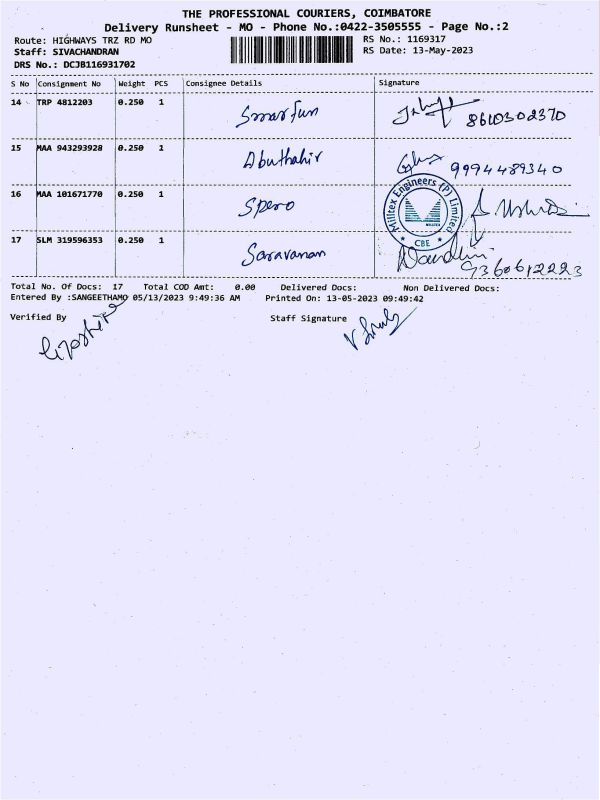 THE PROFESSIONAL COURIERS, COIMBATORE
Delivery Runsheet - MO - Phone No.:0422-3505555 - Page No.:2
Route: HIGHWAYS TRZ RD MO
RS No.: 1169317
Staff: SIVACHANDRAN
RS Date: 13-May-2023
DRS No.: DCJB116931702
S No Consignment No Weight PCS Consignee Details Signature
14 TRP 4812203 0.250 1 8610302370
15 MAA 943293928 0.250 1 Abuthahir 9994489340
16 MAA 101671770 0.250 1 Spero
Milltex Engineers (P) Limited
MILLTEX
* CBE *
17 SLM 319596353 0.250 1 Saravanan
9360612223
Total No. Of Docs: 17 Total COD Amt: 0.00 Delivered Docs: Non Delivered Docs:
Entered By :SANGEETHAMO 05/13/2023 9:49:36 AM Printed On: 13-05-2023 09:49:42
Verified By Staff Signature